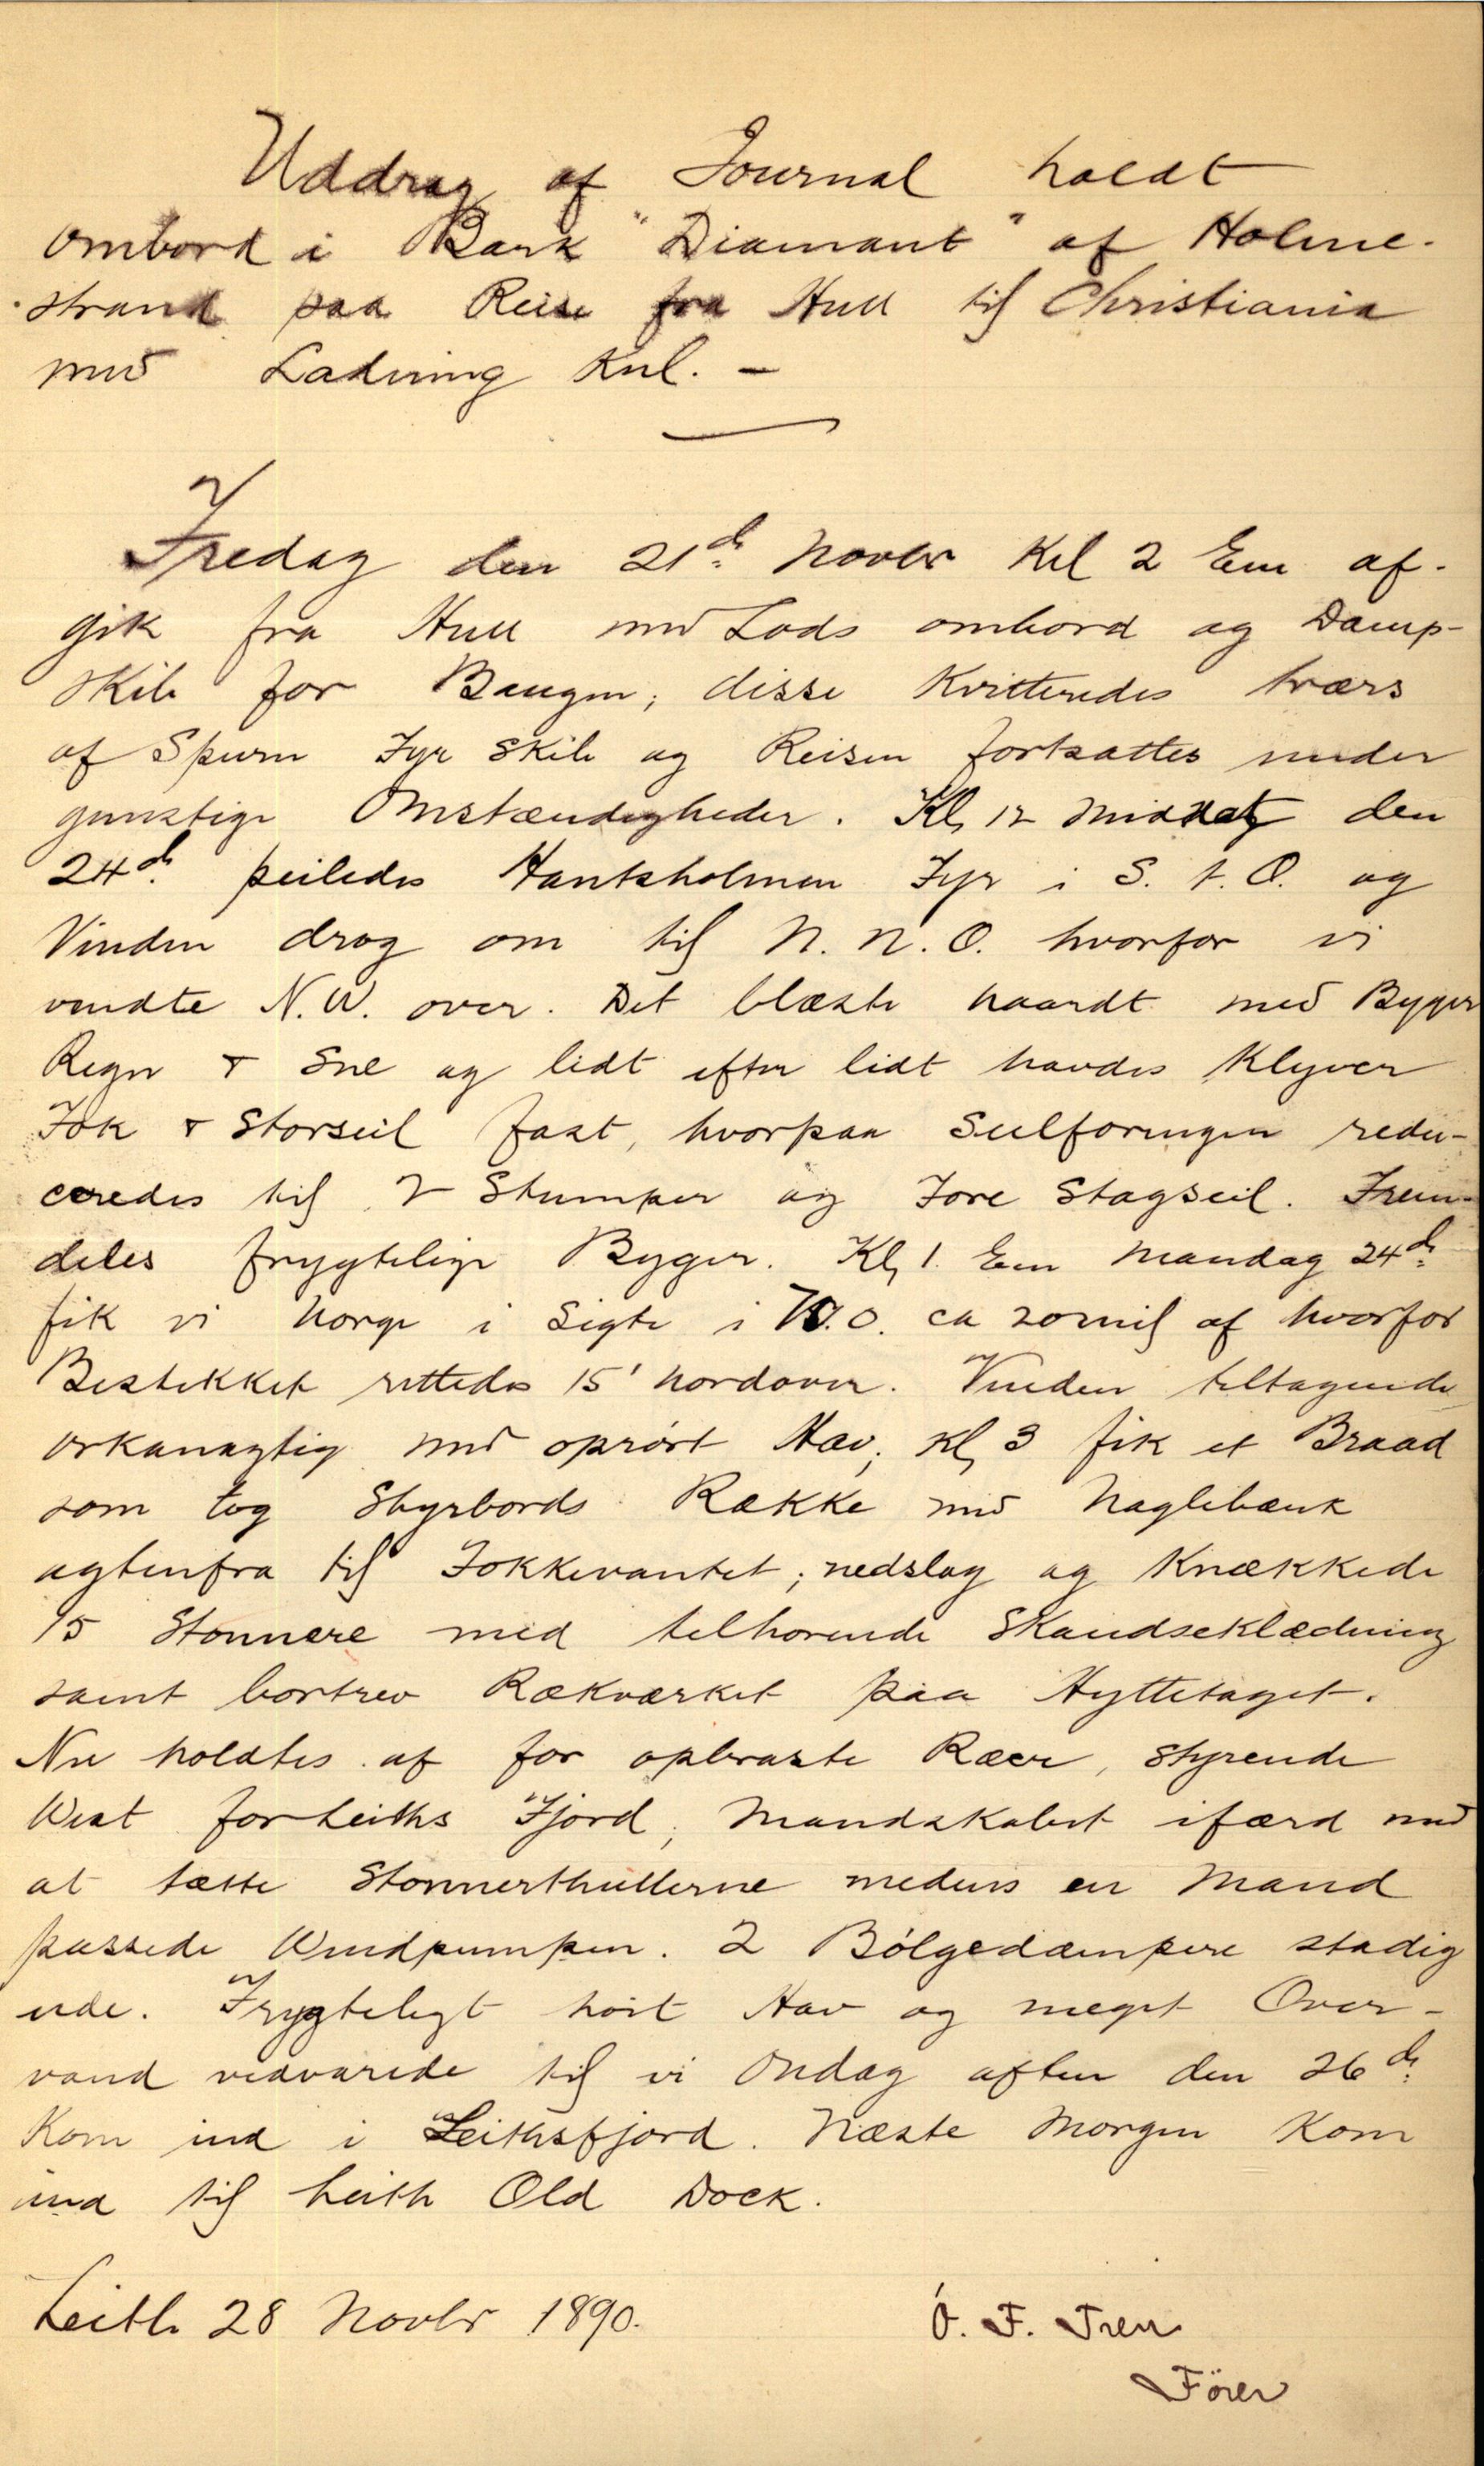 Uddrag af Journal holdt
ombord i Bark "Diamant" af Holme-
strand paa Reise fra Hull til Christiania
med Ladning Kul. -
Fredag den 21de Novbr Kl 2 Em af-
gik fra Hull med Lods ombord og Damp-
skib for Baugen; disse kvitteredes tværs
af Spurn Fyr skib og Reisen fortsattes under
gunstige Omstændigheder. Kl, 12 Middag den
24de peiledes Hantsholmen Fyr i S. t. O. og
Vinden drog om til N. N. O. hvorfor vi
vendte N.W. over. Det blæste haardt med Byger
Regn & Sne og lidt efter lidt havdes Klyver
Fok & Storseil fast, hvorpaa Seilføringen redu-
ceredes til 2 Stumper og Fore Stagseil. Frem-
deles frygtelige Byger. Kl, 1. Em Mandag 24de
fik vi Norge i Sigte i O. ca 20 mil af hvorfor
Bestikket rettedes 15' Nordover. Vinden tiltagende
orkanagtig med oprørt Hav; Kl, 3 fik et Braad
som tog Styrbords Række med Naglebænk
agtenfra til Fokkevantet; nedslog og knækkede
15 Stønnere med tilhørende Skandseklædning
samt bortrev Rækværket paa Hyttetaget.
Nu holdtes af for opbraste Ræer, styrende
West for Leiths Fjord; Mandskabet ifærd med
at tætte Stønnerthullerne medens en Mand
passede Vindpumpen. 2 Bölgedæmpere stadig
ude. Frygteligt höit Hav og meget Over-
vand vedvarede til vi Onsdag aften den 26de
kom ind i Leithsfjord. Næste Morgen kom
ind til Leith Old Dock.
Leith 28 Novbr 1890.
O. F. Tren
Förer